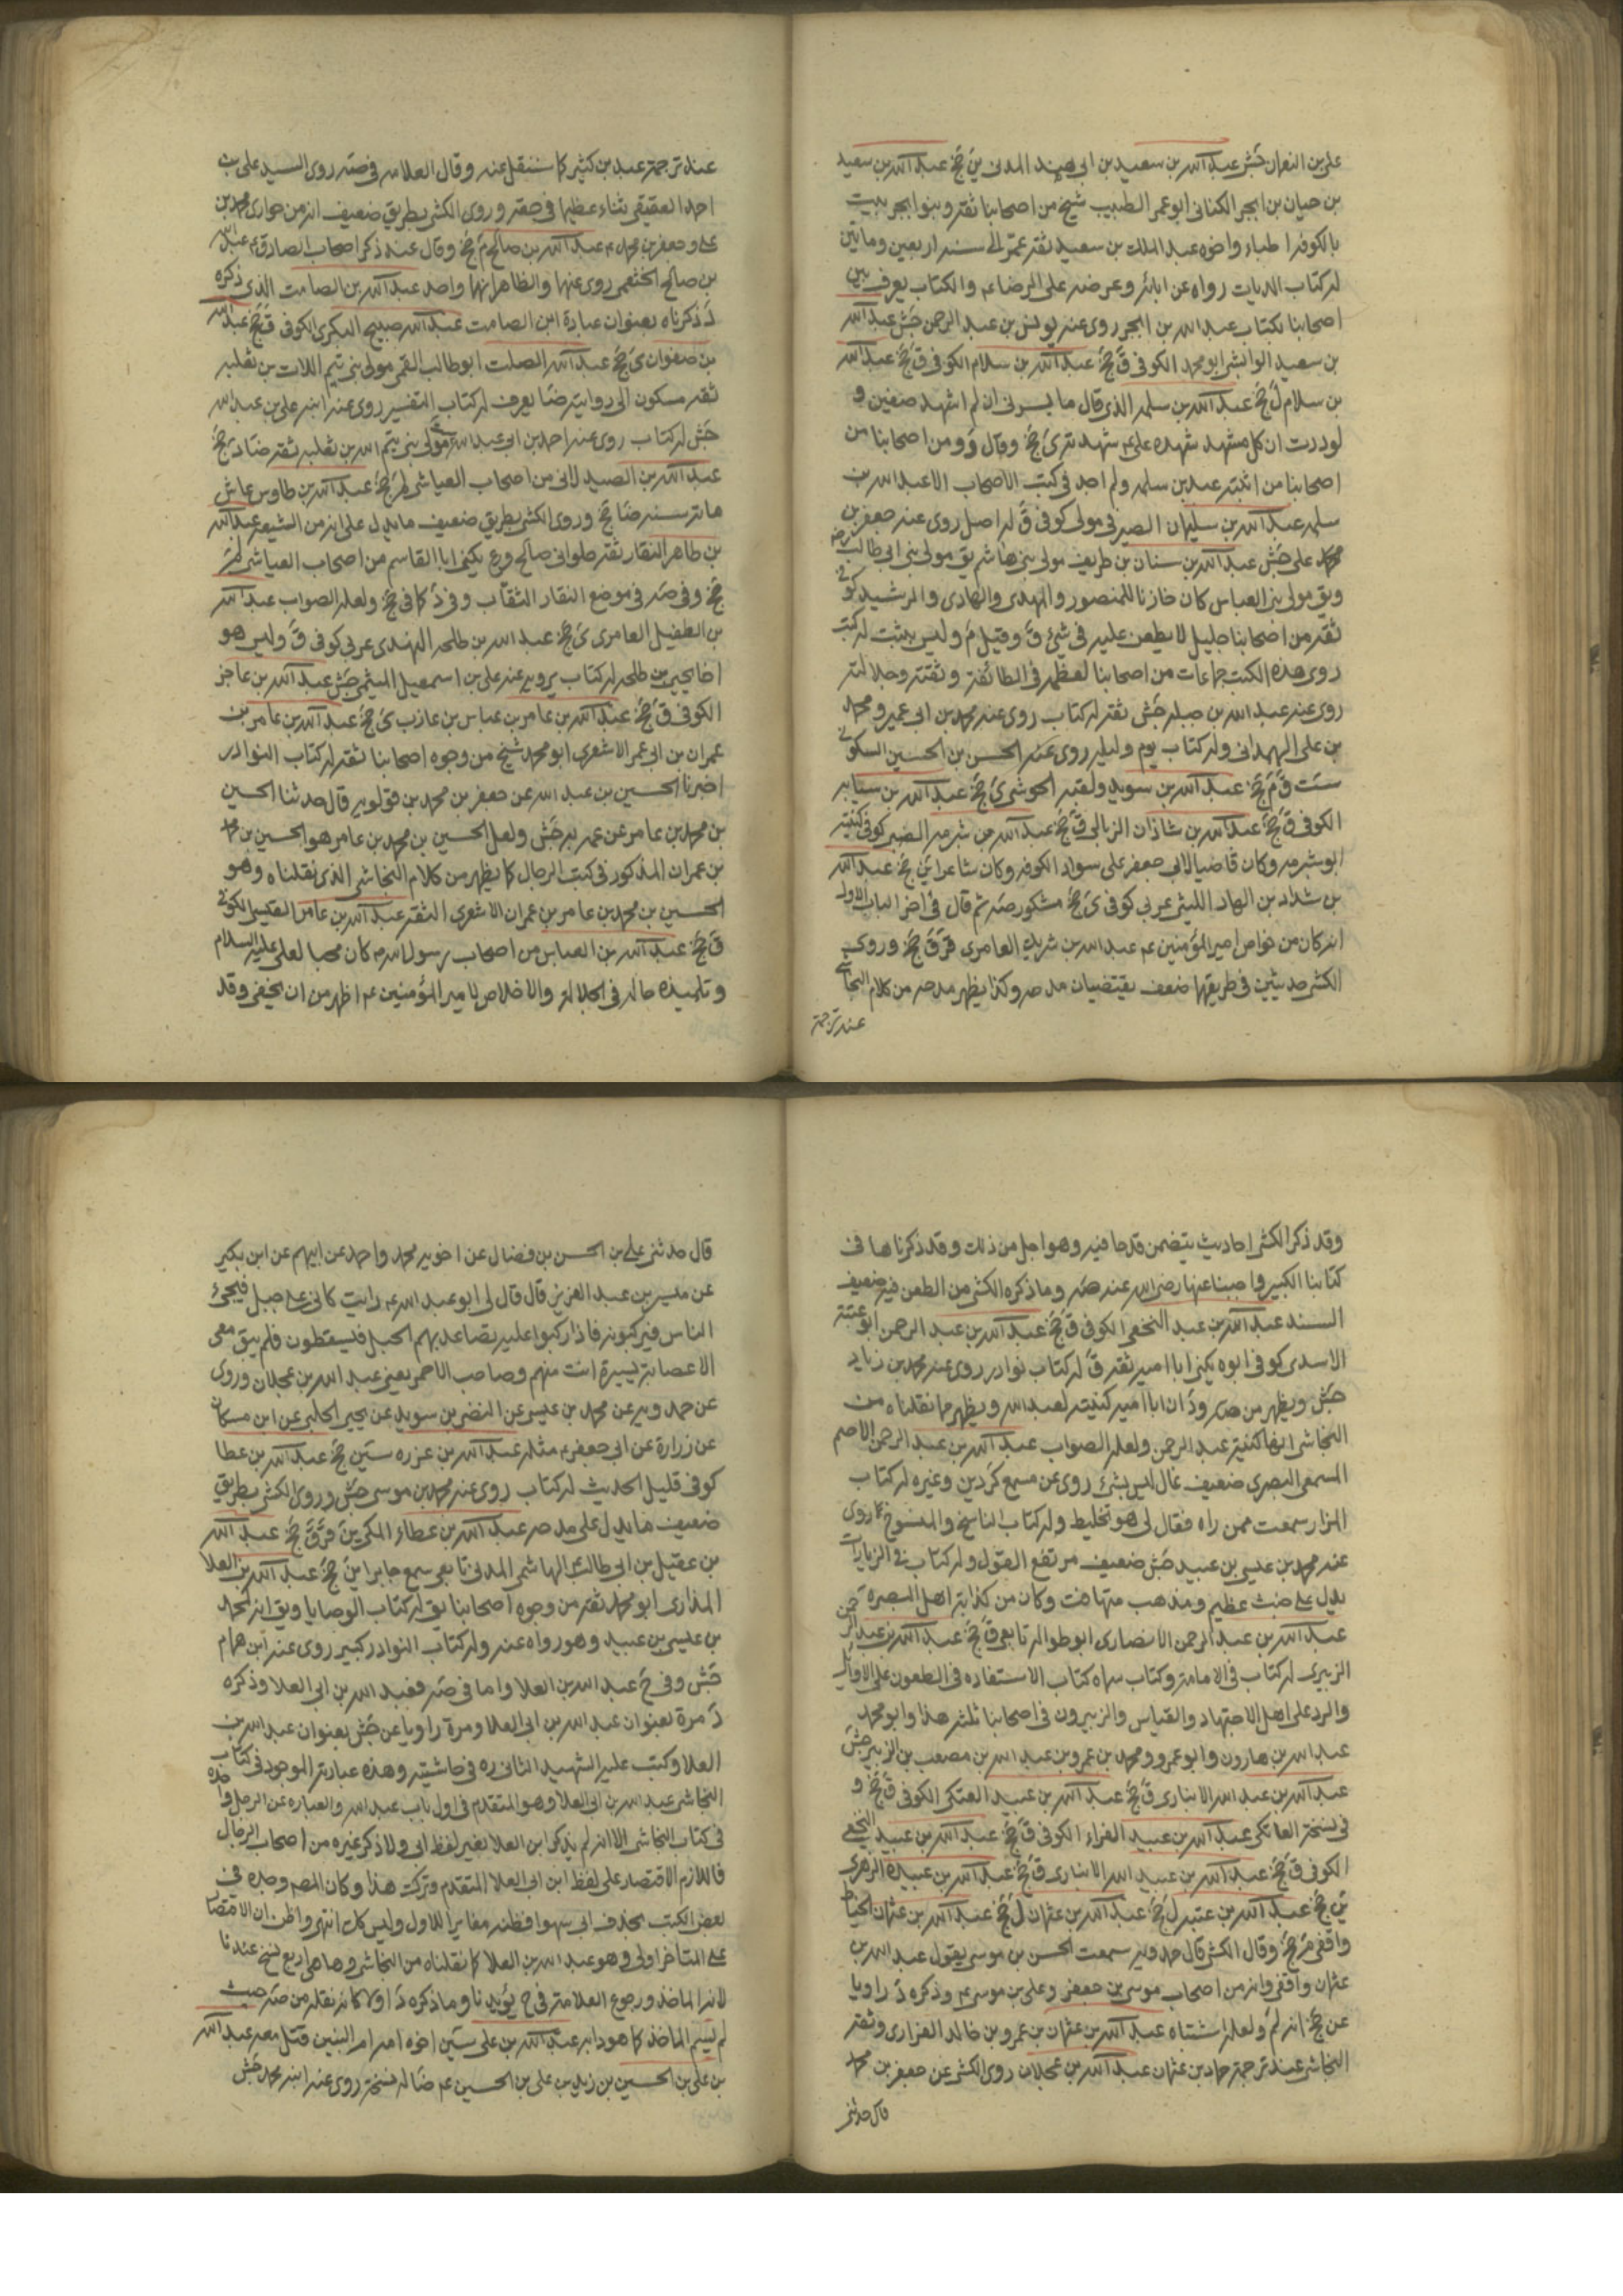 على بن النعمان جش عبد الله بن سعيد بن ابى هند المدنى ين جخ عبد الله بن سعيد
بن حيان بن ابجر الكنانى ابو عمر الطبيب شيخ من اصحابنا ثقة وبنو ابجر بيت
بالكوفة اطباء واخوه عبد الملك بن سعيد ثقة عمر الى سنة اربعين ومايتين
له كتاب الديات رواه عن ابائه وعرضه على الرضا عم والكتاب يعرف بين
اصحابنا بكتاب عبد الله بن ابجر روى عنه يونس بن عبد الرحمن جش عبد الله
بن سعيد الوابشى ابو محمد الكوفى ق جخ عبد الله بن سلام الكوفى ق جخ عبد الله
بن سلام ل جخ عبد الله بن سلمة الذى قال ما يسرنى ان لم اشهد صفين و
لوددت ان كل مشهد شهده على عم شهدته ى جخ وقال د ومن اصحابنا من
اصحابنا من اثبته عبد بن سلمه ولم اجد فى كتب الاصحاب الا عبد الله بن
سلمه عبد الله بن سليمان الصيرفى مولى كوفى ق له اصل روى عنه جعفر بن
على جش عبد الله بن سنان بن طريف مولى بنى هاشم يق مولى بنى ابى طالب
ويق مولى بنى العباس كان خازنا للمنصور والمهدى والهادى والرشيد كوفى
ثقة من اصحابنا جليل لا يطعن عليه فى شئ ق وقيل م وليس بثبت له كتب
روى هذه الكتب جماعات من اصحابنا لعظمه فى الطائفة وثقته وجلالته
روى عنه عبد الله بن جبله جش ثقة له كتاب روى عنه محمد بن ابى عمير ومحمد
بن على الهمدانى وله كتاب يوم وليله روى عنه الحسن بن الحسين السكونى
ست ق م جخ عبد الله بن سويد ولقبه الحوشى ى جخ عبد الله بن سيابه
الكوفى ق جخ عبد الله بن شاذان الزبالى ق جخ عبد الله بن شبرمه الضبى كوفى كنيته
ابو شبرمه وكان قاضيا لابى جعفر على سواد الكوفه وكان شاعرا ين جخ عبد الله
بن شداد بن الهاد الليثى عربى كوفى ى جخ مشكور صه ثم قال فى اخر الباب الاول
انه كان من خواص امير المؤمنين عم عبد الله بن شريك العامرى قر ق جخ وروى
الكشى حديثين فى طريقهما ضعف يقتضيان مدحه وكذا يظهر مدحه من كلام النجاشى
عند ترجمة
عند ترجمة عبيد بن كثير كما سننقل عنه وقال العلامه فى صه روى السيد على بن
احمد العقيقى ثناء عظيما فى حقه وروى الكشى بطريق ضعيف انه من حوارى محمد بن
على وجعفر بن محمد عم عبد الله بن صالح م جخ وقال عند ذكر اصحاب الصادق عم عبد الله
بن صالح الخثعمى روى عنهما والظاهر انهما واحد عبد الله بن الصامت الذى ذكره
د ذكرناه بعنوان عبادة ابن الصامت عبد الله صبيح البكرى الكوفى ق جخ عبد الله
بن صفوان ى جخ عبد الله الصلت ابو طالب القمى مولى بنى تيم اللات بن ثعلبه
ثقه مسكون الى روايته ضا يعرف له كتاب التفسير روى عنه ابنه على بن عبد الله
جش له كتاب روى عنه احمد بن ابى عبد الله مولى بنى تيم الله بن ثعلبه ثقه ضا د جخ
عبد الله بن الصيدلانى من اصحاب العياشى لم جخ عبد الله بن طاوس عاش
ماته سنه ضا جخ وروى الكشى بطريق ضعيف ما يدل على انه من الشيعه عبد الله
بن طاهر النقار ثقه حلوانى صالح ورع يكنى ابا القاسم من اصحاب العياشى لم
جخ وفى صه فى موضع النقار الثقاب وفى د كما فى جخ ولعله الصواب عبد الله
بن الطفيل العامرى ى جخ عبد الله بن طلحه النهدى عربى كوفى ق وليس هو
اخا يحيى بن طلحه له كتاب يرويه عنه على بن اسمعيل الميثمى جش عبد الله بن عاجز
الكوفى ق جخ عبد الله بن عامر بن عباس بن عازب ى جخ عبد الله بن عامر بن
عمران بن ابى عمر الاشعرى ابو محمد شيخ من وجوه اصحابنا ثقه له كتاب النوادر
اخبرنا الحسين بن عبد الله عن جعفر بن محمد بن قولويه قال حدثنا الحسين
بن محمد بن عامر عن عمه به جش ولعل الحسين بن محمد بن عامر هو الحسين بن محمد
بن عمران المذكور فى كتب الرجال كما يظهر من كلام النجاشى الذى نقلناه وهو
الحسين بن محمد بن عامر بن عمران الاشعرى الثقه عبد الله بن عامر القيسى الكوفى
ق جخ عبد الله بن العباس من اصحاب رسول الله م كان محبا لعلى عليه السلام
وتلميذه حاله فى الجلاله والاخلاص لامير المؤمنين عم اظهر من ان يخفى وقد
وقد ذكر الكشى احاديث يتضمن قدحا فيه وهو اجل من ذلك وقد ذكرناها فى
كتابنا الكبير واجبنا عنها رضى الله عنه صه وما ذكره الكشى من الطعن فيه ضعيف
السند عبد الله بن عبد النخعى الكوفى ق جخ عبد الله بن عبد الرحمن ابو عتبة
الاسدى كوفى ابوه يكنى ابا اميه ثقه ق له كتاب نوادر روى عنه محمد بن زياد
جش ويظهر من صه ود ان ابا اميه كنيته لعبد الله ويظهر مما نقلناه من
النجاشى انها كنية عبد الرحمن ولعله الصواب عبد الله بن عبد الرحمن الاصم
المسمعى البصرى ضعيف غال ليس بشئ روى عن مسمع كردين وغيره له كتاب
المزار سمعت ممن راه فقال لى هو تخليط وله كتاب الناسخ والمنسوخ مما روى
عنه محمد بن عيسى بن عبيد جش ضعيف مرتفع القول وله كتاب فى الزيارات
يدل على خبث عظيم ومذهب متهافت وكان من كذابة اهل البصره
عبد الله بن عبد الرحمن الانصارى ابو طواله تابعى ق جخ عبد الله بن عبد الرحمن
الزبيرى له كتاب فى الامامه وكتاب سماه كتاب الاستفاده فى الطعون على الاوائل
والرد على اهل الاجتهاد والقياس والزبيرون فى اصحابنا ثلثه هذا وابو محمد
عبد الله بن هارون وابو عمرو ومحمد بن عمرو بن عبد الله بن مصعب بن الزبير جش
عبد الله بن عبد الله الانبارى ق جخ عبد الله بن عبيد العتكى الكوفى ق جخ و
فى نسخة العاتكى عبد الله بن عبيد الفراء الكوفى ق جخ عبد الله بن عبيد النخعى
الكوفى ق جخ عبد الله بن عبيد الله الانبارى ق جخ عبد الله بن عبيدة الزهرى
ين جخ عبد الله بن عتبه ل جخ عبد الله بن عثمان ل جخ عبد الله بن عثمان الخياط
واقفى م جخ وقال الكشى قال حمدويه سمعت الحسن بن موسى يقول عبد الله بن
عثمان واقفى وانه من اصحاب موسى بن جعفر وعلى بن موسى عم وذكره د راويا
عن جخ انه لم ولعله اشتباه عبد الله بن عثمان بن عمرو بن خالد الفزارى وثقه
النجاشى عند ترجمة حماد بن عثمان عبد الله بن عجلان روى الكشى عن جعفر بن محمد
قال حدثنى
قال حدثنى على بن الحسن بن فضال عن اخويه محمد واحمد عن ابيهم عن ابن بكير
عن ميسر بن عبد العزيز قال قال لى ابو عبد الله عم رايت كانى على جبل فيجئ
الناس فيركبونه فاذا ركبوا عليه تصاعد بهم الجبل فيسقطون فلم يبق معى
الا عصابة يسيرة انت منهم وصاحب الاحمر يعنى عبد الله بن عجلان وروى
عن حمدويه عن محمد بن عيسى عن النضر بن سويد عن يحيى الحلبى عن ابن مسكان
عن زرارة عن ابى جعفر عم مثله عبد الله بن عزره سين جخ عبد الله بن عطا
كوفى قليل الحديث له كتاب روى عنه محمد بن موسى جش وروى الكشى بطريق
ضعيف ما يدل على مدحه عبد الله بن عطاء المكى ين قر ق جخ عبد الله
بن عقيل بن ابى طالب الهاشمى المدنى تابعى سمع جابرا ين جخ عبد الله بن العلا
المذارى ابو محمد ثقه من وجوه اصحابنا يق له كتاب الوصايا ويق انه لمحمد
بن عيسى بن عبيد وهو رواه عنه وله كتاب النوادر كبير روى عنه ابن همام
جش وفى ح عبد الله بن العلا واما فى صه فعبد الله بن ابى العلا وذكره
د مرة بعنوان عبد الله بن ابى العلا ومرة راويا عن جش بعنوان عبد الله بن
العلا وكتب عليه الشهيد الثانى ره فى حاشيته وهذه عبارته الموجود فى كتاب
النجاشى عبد الله بن ابى العلا وهو المتقدم فى اول باب عبد الله والعباره عن الرجل واحده
فى كتاب النجاشى الا انه لم يذكر ابن العلا بغير لفظ ابى ولا ذكر غيره من اصحاب الرجال
فاللازم الاقتصار على لفظ ابن ابى العلا المتقدم وترك هذا وكان المصه وجده فى
بعض الكتب بحذف ابى سهوا فظنه مغايرا للاول وليس كك انتهى واظن ان الاقتصار
على المتاخر اولى وهو عبد الله بن العلا كما نقلناه من النجاشى وها هى اربع نسخ عندنا
لانه الماخذ ورجوع العلامة فى ح يؤيدنا وما ذكره د اولا كانه نقله من صه حيث
لم يسم الماخذ كما هو دابه عبد الله بن على سين اخوه امه ام البنين قتل معه عبد الله
بن على بن الحسين بن زيد بن على بن الحسين عم ضا له نسخة روى عنه ابنه محمد جش